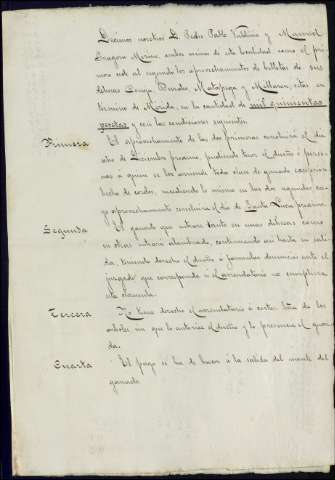 Decimos nosotros D. Pedro Pablo Valdivia y Manuel
Aragon Merino, ambos vecinos de esta localidad como el pri-
mero cede al segundo los aprovechamientos de bellotas de sus
dehesas Conejo Prado, Matapega y Millaron, sitas en
término de Mérida, en la cantidad de mil quinientas
pesetas y con las condiciones siguientes.
Primera El aprovechamiento de las dos primeras concluirá el dia
ocho de Diciembre proximo pudiendo tanto el dueño ó perso-
nas á quien se los arriende toda clase de ganado excepcion
hecha de cerdos, sucediendo lo mismo en las dos segundas cu-
yo aprovechamiento concluirá el dia de Santa Lucia proximo.
Segunda El ganado que entrara tanto en unas dehesas como
en otras entrará alambrado, continuando asi hasta su sali-
da, teniendo derecho el dueño á formular denuncia ante el
juzgado que corresponda si el arrendatario no cumpliera
esta clausula.
Tercera No tiene derecho el arrendatario á cortar leña de los
arboles sin que lo autorice el dueño y lo presencie el guar-
da.
Cuarta El pago se ha de hacer á la salida del monte del
ganado.